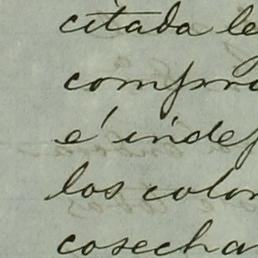 citada le
compro
é indef
los colon
cosecha